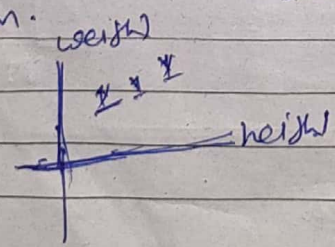 n.
weight
height